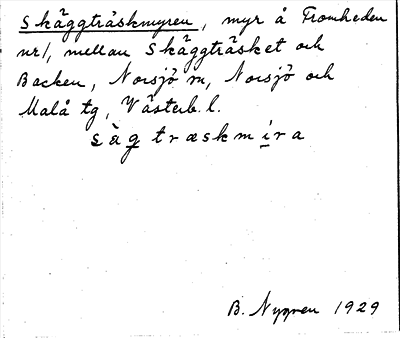 Skäggträskmyren, myr å Fromheden
nr 1, mellan Skäggträsket och
Backen, Norsjö sn, Norsjö och
Malå tg, Västerb. l.
sàg træskmira
B. Nygren 1929